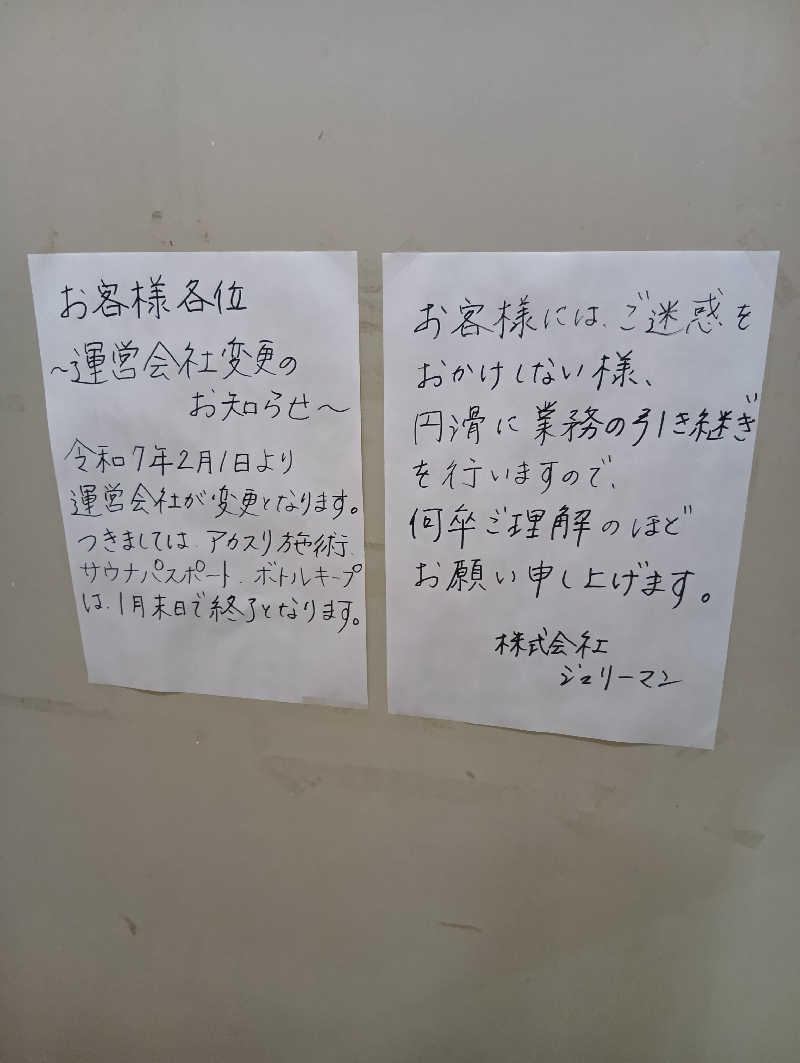 お客様各位
～運営会社変更の
お知らせ～
令和7年2月1日より
運営会社が変更となります。
つきましては、アカスリ施術、
サウナパスポート、ボトルキープ
は、1月末日で終了となります。
お客様には、ご迷惑を
おかけしない様、
円滑に業務の引き継ぎ
を行いますので、
何卒ご理解のほど
お願い申し上げます。
株式会社
ジェリーマン